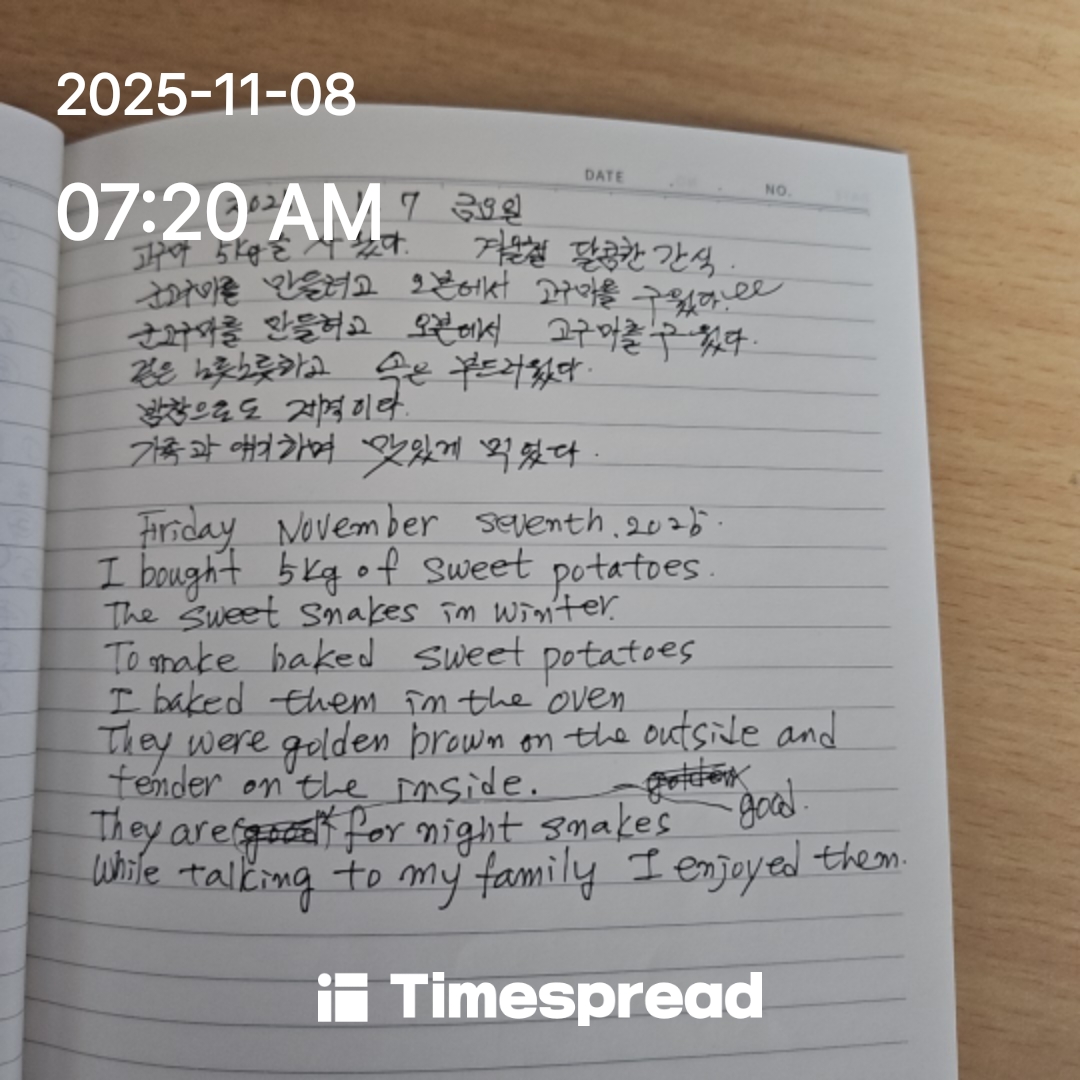 2025-11-08
DATE NO.
07:20 AM
7 금요일
고구마 5kg을 사 왔다. 겨울철 달콤한 간식.
군고구마를 만들려고 오븐에서 고구마를 구웠다.
군고구마를 만들려고 오븐에서 고구마를 구웠다.
겉은 노릇노릇하고 속은 부드러웠다.
밤참으로도 제격이다.
가족과 얘기하며 맛있게 먹었다.
Friday November seventh. 2025.
I bought 5kg of sweet potatoes.
The sweet snakes in winter.
To make baked sweet potatoes
I baked them in the oven
They were golden brown on the outside and
tender on the inside.
good.
They are for night snakes
While talking to my family I enjoyed them.
Timespread